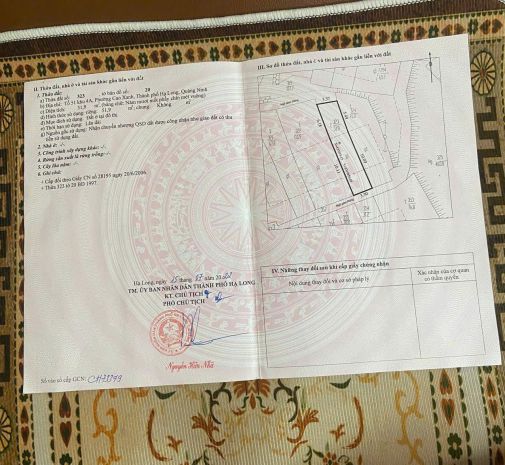 II. Thửa đất, nhà ở và tài sản khác gắn liền với đất
1. Thửa đất:
a) Thửa đất số: 323 tờ bản đồ số: 20
b) Địa chỉ: Tổ 51 khu 4A, Phường Cao Xanh, Thành phố Hạ Long, Quảng Ninh
c) Diện tích: 51,9 m², (bằng chữ: Năm mươi mốt phẩy chín mét vuông)
d) Hình thức sử dụng: riêng: 51,9 m²; chung: Không m²
đ) Mục đích sử dụng: Đất ở tại đô thị
e) Thời hạn sử dụng: Lâu dài
g) Nguồn gốc sử dụng: Nhận chuyển nhượng QSD đất được công nhận như giao đất có thu
tiền sử dụng đất.
2. Nhà ở: -/-
3. Công trình xây dựng khác: -/-
4. Rừng sản xuất là rừng trồng: -/-
5. Cây lâu năm: -/-
6. Ghi chú:
+ Cấp đổi theo Giấy CN số 28195 ngày 20/6/2006.
+ Thửa 323 tờ 20 BĐ 1997.
Hạ Long, ngày 25 tháng 07 năm 20
TM. ỦY BAN NHÂN DÂN THÀNH PHỐ HẠ LONG
KT. CHỦ TỊCH
PHÓ CHỦ TỊCH
Nguyễn Hữu Nhã
Số vào sổ cấp GCN: CH
III. Sơ đồ thửa đất, nhà ở và tài sản khác gắn liền với đất
323
IV. Những thay đổi sau khi cấp giấy chứng nhận
Nội dung thay đổi và cơ sở pháp lý
Xác nhận của cơ quan
có thẩm quyền